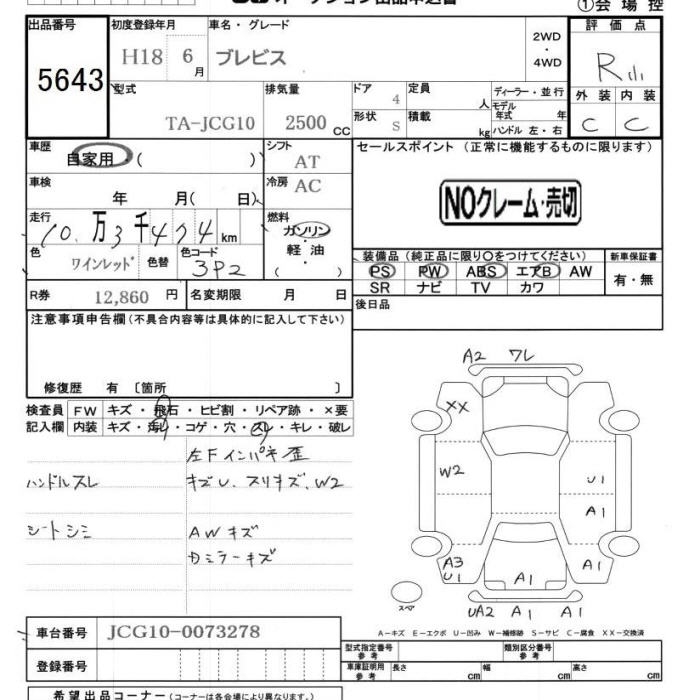 ①会場控
出品番号 初度登録年月 車名・グレード 2WD・4WD 評価点
5643 H18 6月 ブレビス R小
型式 排気量 ドア 定員 人 ディーラー・並行 外装 内装
TA-JCG10 2500CC 4 モデル年式 年 C C
形状 S 積載 kg ハンドル 左・右
車歴 自家用( ) シフト AT セールスポイント(正常に機能するものに限ります)
車検 年 月( 日) 冷房 AC NOクレーム・売切
走行 10万3千474km 燃料 ガソリン
軽油
( )
色 ワインレッド 色替 色コード 3P2
装備品(純正品に限り○をつけてください) 新車保証書
PS PW ABS エアB AW 有・無
SR ナビ TV カワ
R券 12,860円 名変期限 月 日 後日品
注意事項申告欄(不具合内容等は具体的に記入して下さい)
修復歴 有 〔箇所 〕
検査員 FW キズ・飛石・ヒビ割・リペア跡・×要
記入欄 内装 キズ・汚レ・コゲ・穴・スレ・キレ・破レ
左Fインパネ歪
ハンドルスレ キズU、スリキズ、W2
シートシミ AWキズ
カミラーキズ
A2 ワレ
XX
W2 U1
A1
A3
U1 A1 A1
スペア UA2 A1 A1
A-キズ E-エクボ U-凹み W-補修跡 S-サビ C-腐食 XX-交換済
車台番号 JCG10-0073278
登録番号
型式指定番号 参考 類別区分番号 参考
車庫証明用 参考 長さ cm 幅 cm 高さ cm
希望出品コーナー(コーナーは各会場により異なります)